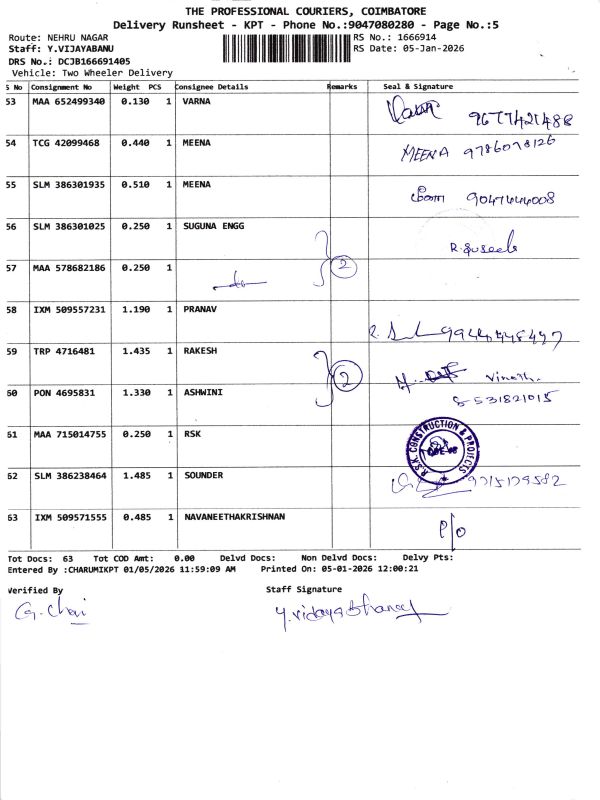 THE PROFESSIONAL COURIERS, COIMBATORE
Delivery Runsheet - KPT - Phone No.:9047080280 - Page No.:5
Route: NEHRU NAGAR
RS No.: 1666914
Staff: Y.VIJAYABANU
RS Date: 05-Jan-2026
DRS No.: DCJB166691405
Vehicle: Two Wheeler Delivery
S No Consignment No Weight PCS Consignee Details Remarks Seal & Signature
53 MAA 652499340 0.130 1 VARNA 9677421488
54 TCG 42099468 0.440 1 MEENA MEENA 9786098126
55 SLM 386301935 0.510 1 MEENA மீனா 9047644008
56 SLM 386301025 0.250 1 SUGUNA ENGG R. Suseela
57 MAA 578682186 0.250 1 2
58 IXM 509557231 1.190 1 PRANAV
59 TRP 4716481 1.435 1 RAKESH 2 Vinoth.
60 PON 4695831 1.330 1 ASHWINI 8531821015
61 MAA 715014755 0.250 1 RSK R.S.K. CONSTRUCTION & PROJECTS
62 SLM 386238464 1.485 1 SOUNDER 9715179582
63 IXM 509571555 0.485 1 NAVANEETHAKRISHNAN P/o
Tot Docs: 63 Tot COD Amt: 0.00 Delvd Docs: Non Delvd Docs: Delvy Pts:
Entered By :CHARUMIKPT 01/05/2026 11:59:09 AM Printed On: 05-01-2026 12:00:21
Verified By Staff Signature